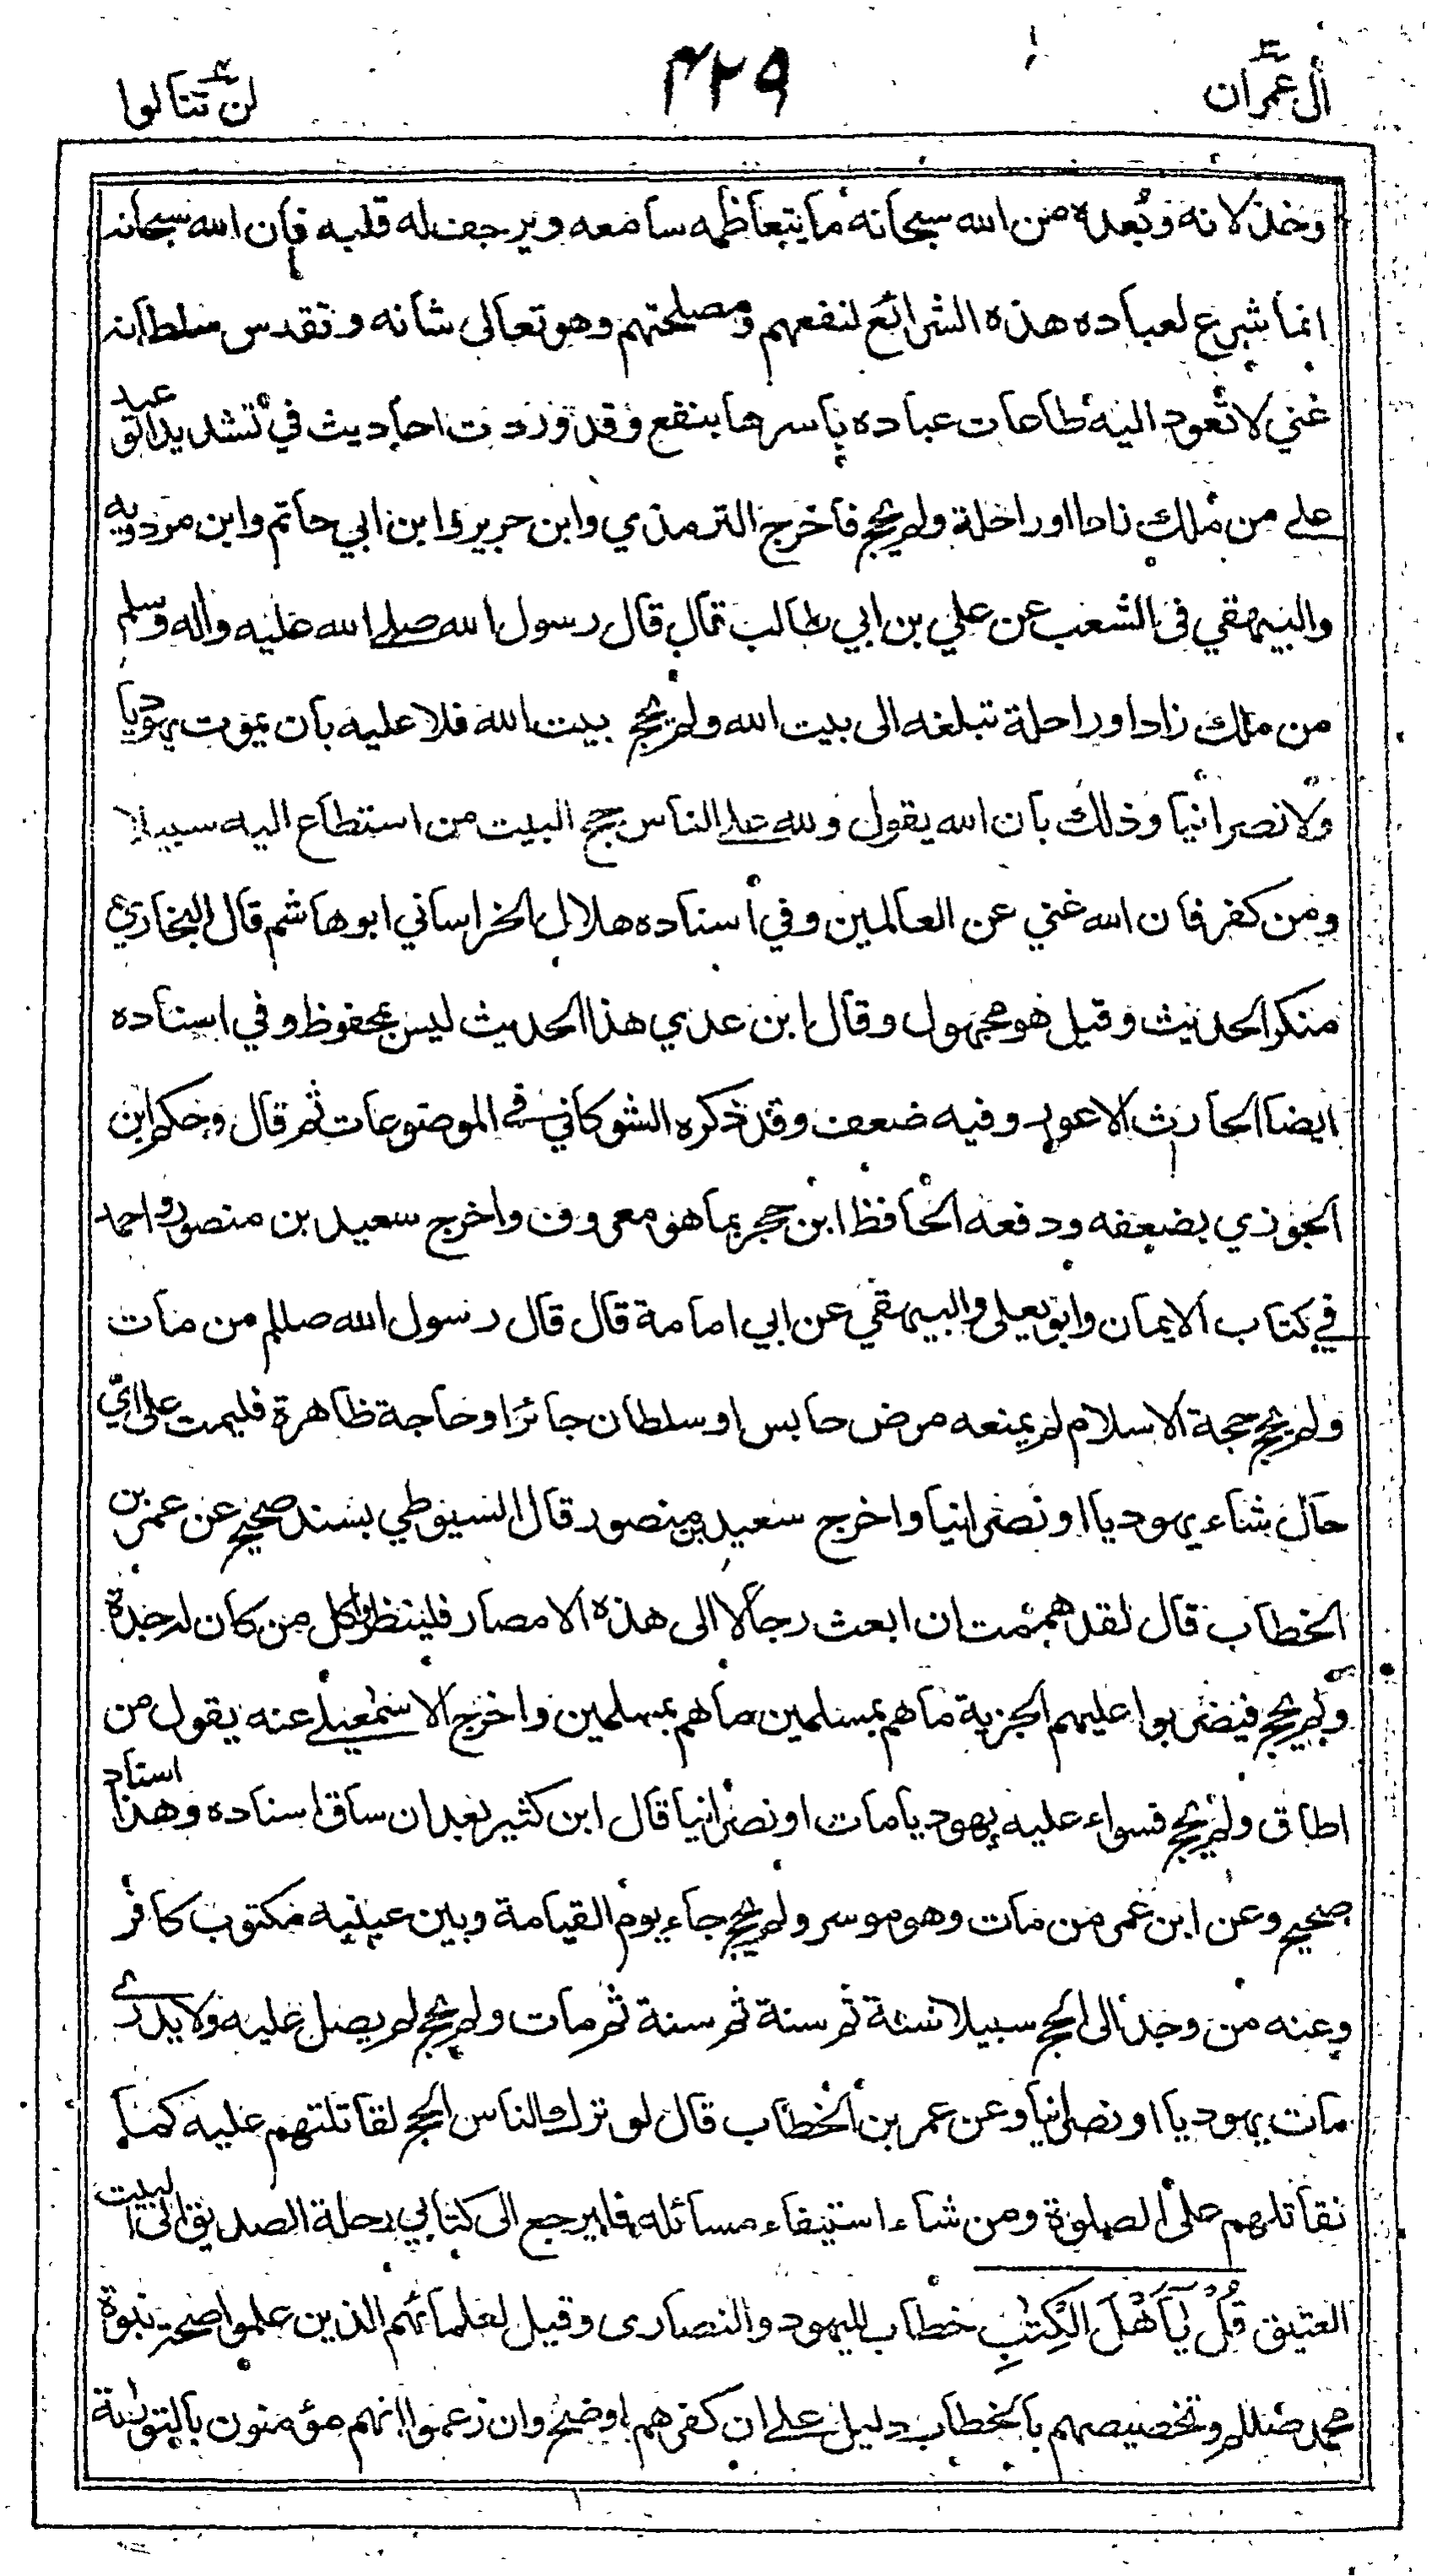 أل عمران ٤٢٩ لن تنالوا
وخذلانه وبعده من الله سبحانه ما يتعاظمه سامعه ويرجف له قلبه فإن الله سبحانه
انما شرع لعباده هذه الشرائع لنفعهم ومصلحتهم وهو تعالى شانه وتقدس سلطانه
غني لا تعود اليه طاعات عباده بأسرها بنفع وقد وردت احاديث في تشديد الوعيد
على من ملك زادا او راحلة ولم يحج فاخرج الترمذي وابن جرير وابن ابي حاتم وابن مردويه
والبيهقي في الشعب عن علي بن ابي طالب قال قال رسول الله صلى الله عليه واله وسلم
من ملك زادا وراحلة تبلغه الى بيت الله ولم يحج بيت الله فلا عليه بان يموت يهوديا
ولا نصرانيا وذلك بان الله يقول ولله على الناس حج البيت من استطاع اليه سبيلا
ومن كفر فان الله غني عن العالمين وفي اسناده هلال الخراساني ابو هاشم قال البخاري
منكر الحديث وقيل هو مجهول وقال ابن عدي هذا الحديث ليس بمحفوظ وفي اسناده
ايضا الحارث الاعور وفيه ضعف وقد ذكره الشوكاني في الموضوعات ثم قال وحكم ابن
الجوزي بضعفه ودفعه الحافظ ابن حجر بما هو معروف واخرج سعيد بن منصور واحمد
في كتاب الايمان وابو يعلى والبيهقي عن ابي امامة قال قال رسول الله صللم من مات
ولم يحج حجة الاسلام لم يمنعه مرض حابس او سلطان جائر او حاجة ظاهرة فليمت على اي
حال شاء يهوديا او نصرانيا واخرج سعيد بن منصور قال السيوطي بسند صحيح عن عمر بن
الخطاب قال لقد هممت ان ابعث رجالا الى هذه الامصار فلينظروا كل من كان له جدة
ولم يحج فيضربوا عليهم الجزية ما هم بمسلمين ما هم بمسلمين واخرج الاسمعيلي عنه يقول من
اطاق ولم يحج فسواء عليه يهوديا مات او نصرانيا قال ابن كثير بعد ان ساق اسناده وهذا اسناد
صحيح وعن ابن عمر من مات وهو موسر ولم يحج جاء يوم القيامة وبين عينيه مكتوب كافر
وعنه من وجد الى الحج سبيلا سنة ثم سنة ثم سنة ثم مات ولم يحج لم يصل عليه ولا يدرى
مات يهوديا او نصرانيا وعن عمر بن الخطاب قال لو ترك الناس الحج لقاتلتهم عليه كما
نقاتلهم على الصلوة ومن شاء استيفاء مسائله فليرجع الى كتابي رحلة الصديق الى البيت
العتيق قُلْ يٰٓاَهْلَ الْكِتٰبِ خطاب لليهود والنصارى وقيل لعلمائهم الذين علموا صحة نبوة
محمد صللم وتخصيصهم بالخطاب دليل على ان كفرهم اوضح وان زعموا انهم مؤمنون بالتورىة